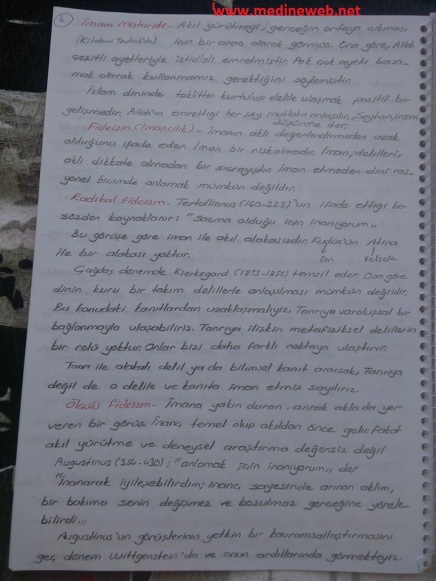 www.medineweb.net
6
İmam Maturidi - Akıl yürütmeyi, gerçeğin ortaya çıkması
(Kitabu't Tevhid'te) için bir araç olarak görmüş. Ona göre, Allah
çeşitli ayetleriyle istidlali emretmiştir. Pek çok ayeti basa-
mak olarak kullanmamız gerektiğini söylemiştir.
İslam dininde taklitten kurtulup delile ulaşmak pozitif bir
gelişmedir. Allah'ın emrettiği her şey mutlaka anlaşılır, Şeytan, imanı
düşünme der.
Fideizm (İmancılık) - İmanın aklı değerlendirmeden uzak
olduğunu ifade eden. İman bir risk almadır. İman, delilleri,
aklı dikkate almadan bir sıçrayıştır. İman etmeden dini ras-
yonel biçimde anlamak mümkün değildir.
Radikal Fideizm - Tertullianus (160-225)'un ifade ettiği bir
sözden kaynaklanır: "Saçma olduğu için inanıyorum"
Bu görüşe göre iman ile akıl alakasızdır. Kudüs'ün Atina
ile bir alakası yoktur. Din Felsefe
Çağdaş dönemde Kierkegard (1813-1855) temsil eder. Ona göre
dinin kuru bir takım delillerle anlaşılması mümkün değildir.
Bu konudaki kanıtlardan uzaklaşmalıyız. Tanrıya varoluşsal bir
bağlanmayla ulaşabiliriz. Tanrıya ilişkin metafiziksel delillerin
bir rolü yoktur. Onlar bizi daha farklı noktaya ulaştırır.
Tanrı ile alakalı delil ya da bilimsel kanıt ararsak Tanrıya
değil de o delile ve kanıta iman etmiş sayılırız.
Ölçülü Fideizm - İmana yakın duran, ancak akla da yer
veren bir görüş. İnanç temel olup akıldan önce gelir. Fakat
akıl yürütme ve deneysel araştırma değersiz değil
Augustinus (354-430); "anlamak için inanıyorum" der
"İnanarak iyileşebilirdim; inanç sayesinde arınan aklım,
bir bakıma senin değişmez ve bozulmaz gerçeğine yönele-
bilirdi."
Augustinus'un görüşlerinin yetkin bir kavramsallaştırmasını
geç dönem Wittgenstein'da ve onun ardıllarında görmekteyiz.